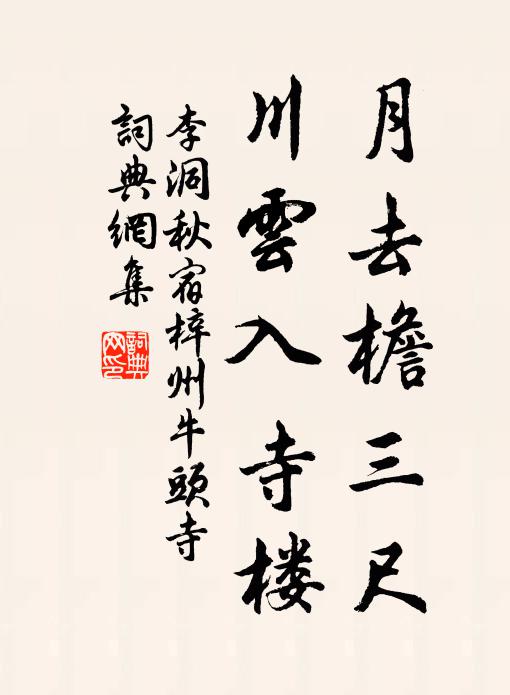 月去檐三尺
川雲入寺楼
李洞秋宿梓州牛頭寺
詞典網集
詞典網印